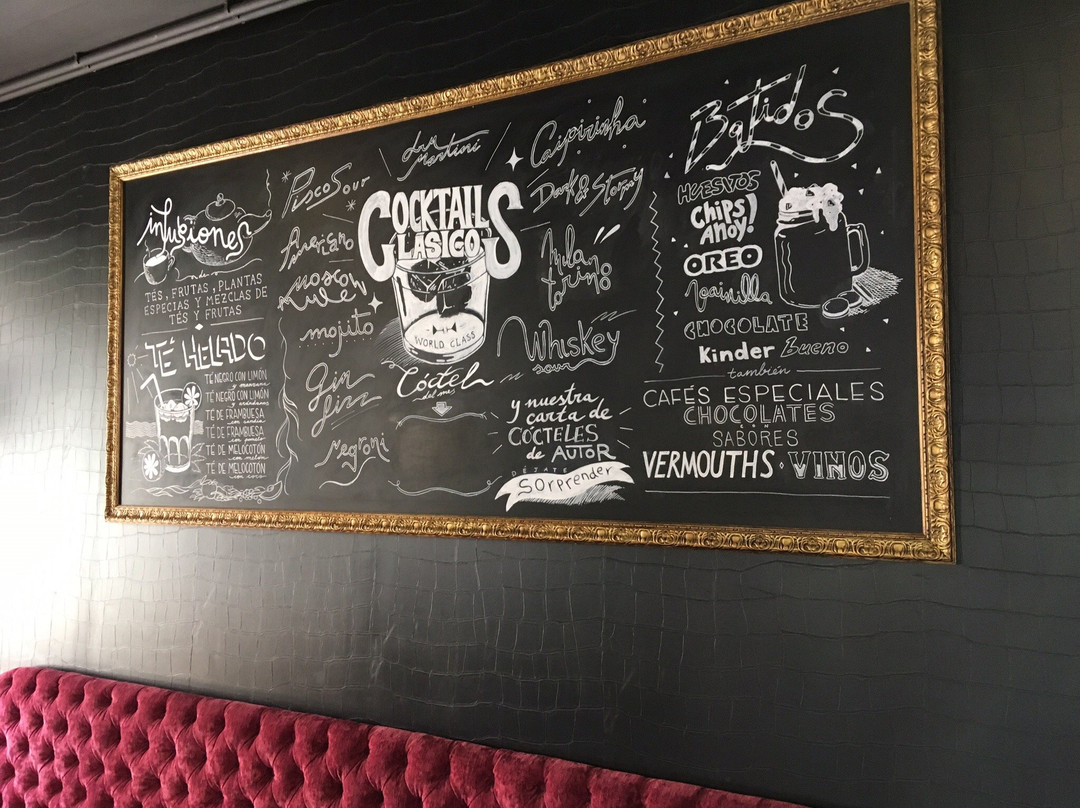 infusiones
TÉS, FRUTAS, PLANTAS
ESPECIAS Y MEZCLAS DE
TÉS Y FRUTAS
TÉ HELADO
TÉ NEGRO CON LIMÓN
y manzana
TÉ NEGRO CON LIMÓN
y arándanos
TÉ DE FRAMBUESA
con sandía
TÉ DE FRAMBUESA
con pomelo
TÉ DE MELOCOTÓN
con melón
TÉ DE MELOCOTÓN
con coco
Pisco Sour
Americano
Moscow
Mule
mojito
Gin
fizz
Negroni
Martini
COCKTAILS
CLASICOS
WORLD CLASS
Cóctel
del mes
Caipirinha
Dark & Stormy
Milano
torino
Whiskey
sour
y nuestra
carta de
CÓCTELES
de AUTOR
DÉJATE
Sorprender
Batidos
HUESITOS
Chips
Ahoy!
OREO
Vainilla
CHOCOLATE
Kinder Bueno
también
CAFÉS ESPECIALES
CHOCOLATES
CON
SABORES
VERMOUTHS · VINOS